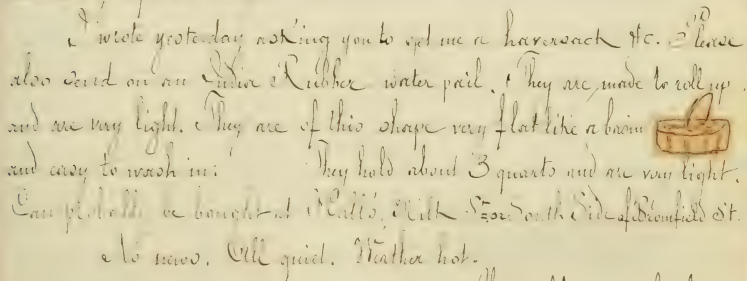 I wrote yesterday asking you to get me a haversack &c. Please
also send on an India Rubber water pail. They are made to roll up
and are very light. They are of this shape very flat like a basin
and easy to wash in. They hold about 3 quarts and are very light.
Can probably be bought at Hall's, Milk St. or South Side of Bromfield St.
No news. All quiet. Weather hot.